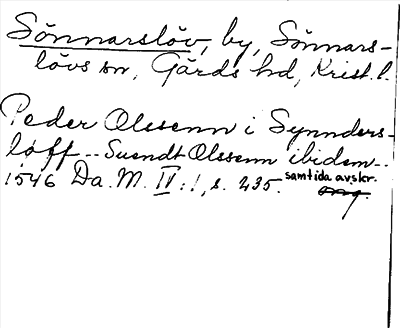 Sönnarslöv, by, Sönnars-
lövs sn, Gärds hd, Krist. l.
Peder Olssenn i Synnders-
løff -- Suendt Olssenn ibidem --
1546 Da. M. IV:1, s. 235. samtida avskr.
orig.